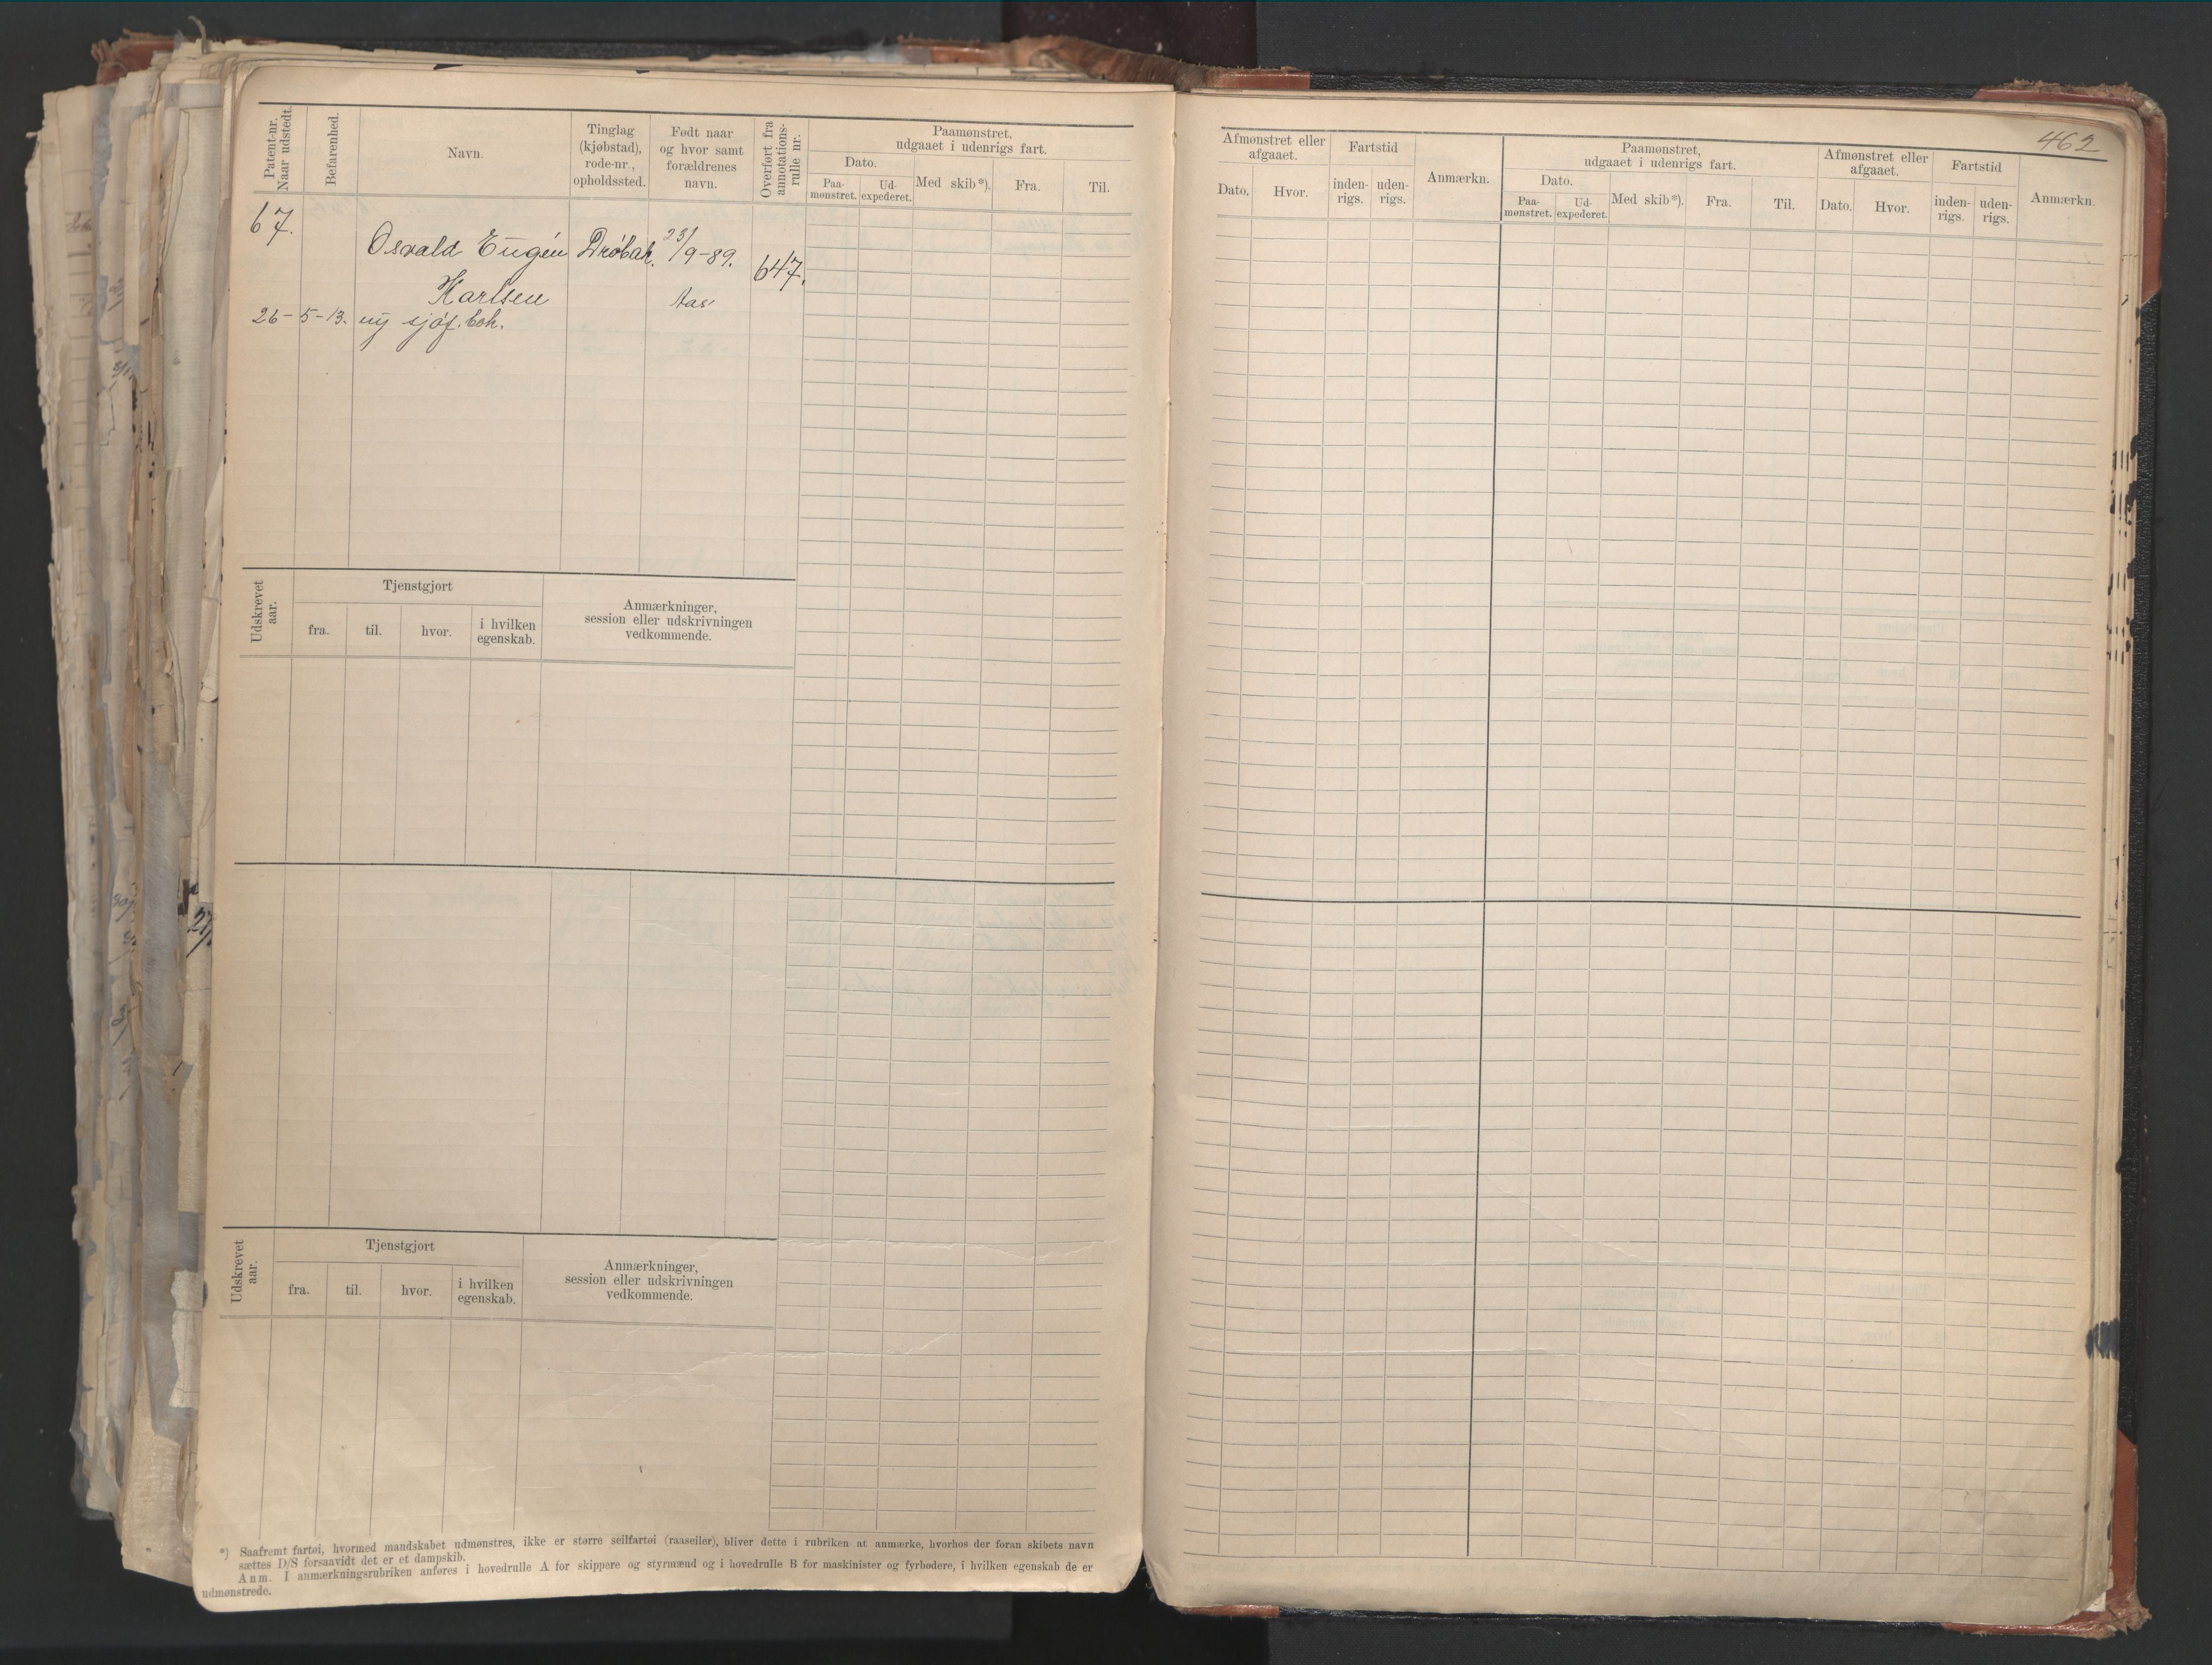 462
Patent-nr. Naar udstedt.
Befarenhed.
Navn.
Tinglag
(kjøbstad),
rode-nr.,
opholdssted.
Født naar
og hvor samt
forældrenes
navn.
Overført fra
annotations-
rulle nr.
Paamønstret,
udgaaet i udenrigs fart.
Dato.
Paa-
mønstret.
Ud-
expederet.
Med skib*).
Fra.
Til.
Afmønstret eller
afgaaet.
Dato.
Hvor.
Fartstid
inden-
rigs.
uden-
rigs.
Anmærkn.
Paamønstret,
udgaaet i udenrigs fart.
Dato.
Paa-
mønstret.
Ud-
expederet.
Med skib*).
Fra.
Til.
Afmønstret eller
afgaaet.
Dato.
Hvor.
Fartstid
inden-
rigs.
uden-
rigs.
Anmærkn.
67.
Osvald Eugén Drøbak. 23/9-89. 647.
Karlsen Aas
26-5-13. ny sjøf. bok.
Udskrevet
aar.
Tjenstgjort
fra.
til.
hvor.
i hvilken
egenskab.
Anmærkninger,
session eller udskrivningen
vedkommende.
Udskrevet
aar.
Tjenstgjort
fra.
til.
hvor.
i hvilken
egenskab.
Anmærkninger,
session eller udskrivningen
vedkommende.
*) Saafremt fartøi, hvormed mandskabet udmønstres, ikke er større seilfartøi (raaseiler), bliver dette i rubriken at anmærke, hvorhos der foran skibets navn
sættes D/S forsaavidt det er et dampskib.
Anm. I anmærkningsrubriken anføres i hovedrulle A for skippere og styrmænd og i hovedrulle B for maskinister og fyrbødere, i hvilken egenskab de er
udmønstrede.